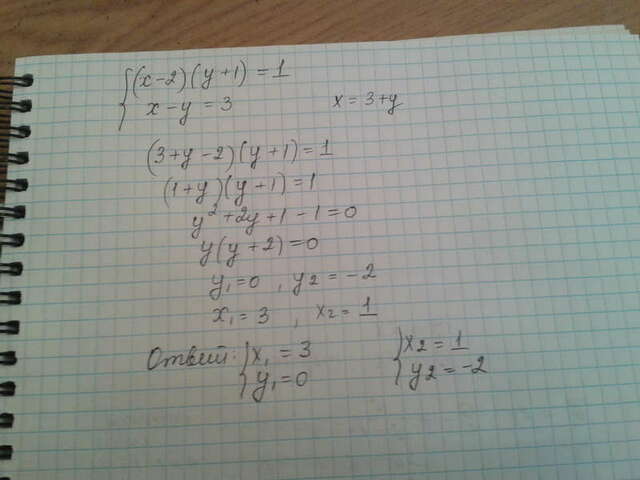 (x-2)(y+1) = 1
x-y = 3 x = 3+y
(3+y-2)(y+1)=1
(1+y)(y+1)=1
y²+2y+1-1=0
y(y+2)=0
y₁=0 , y₂ = -2
x₁ = 3 , x₂ = 1
Ответ: x₁ = 3 x₂ = 1
y₁=0 y₂ = -2